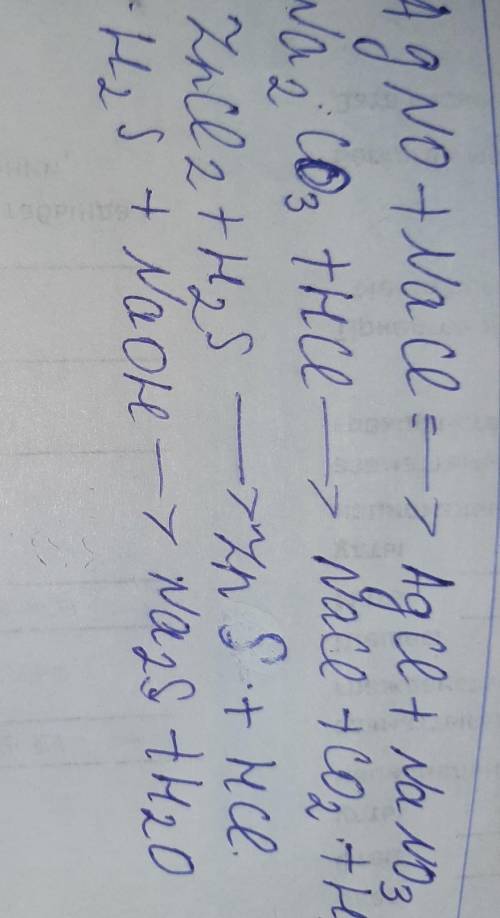 AgNO + NaCl → AgCl + NaNO3
Na2CO3 + HCl → NaCl + CO2 + H
ZnCl2 + H2S → ZnS + HCl
H2S + NaOH → Na2S + H2O